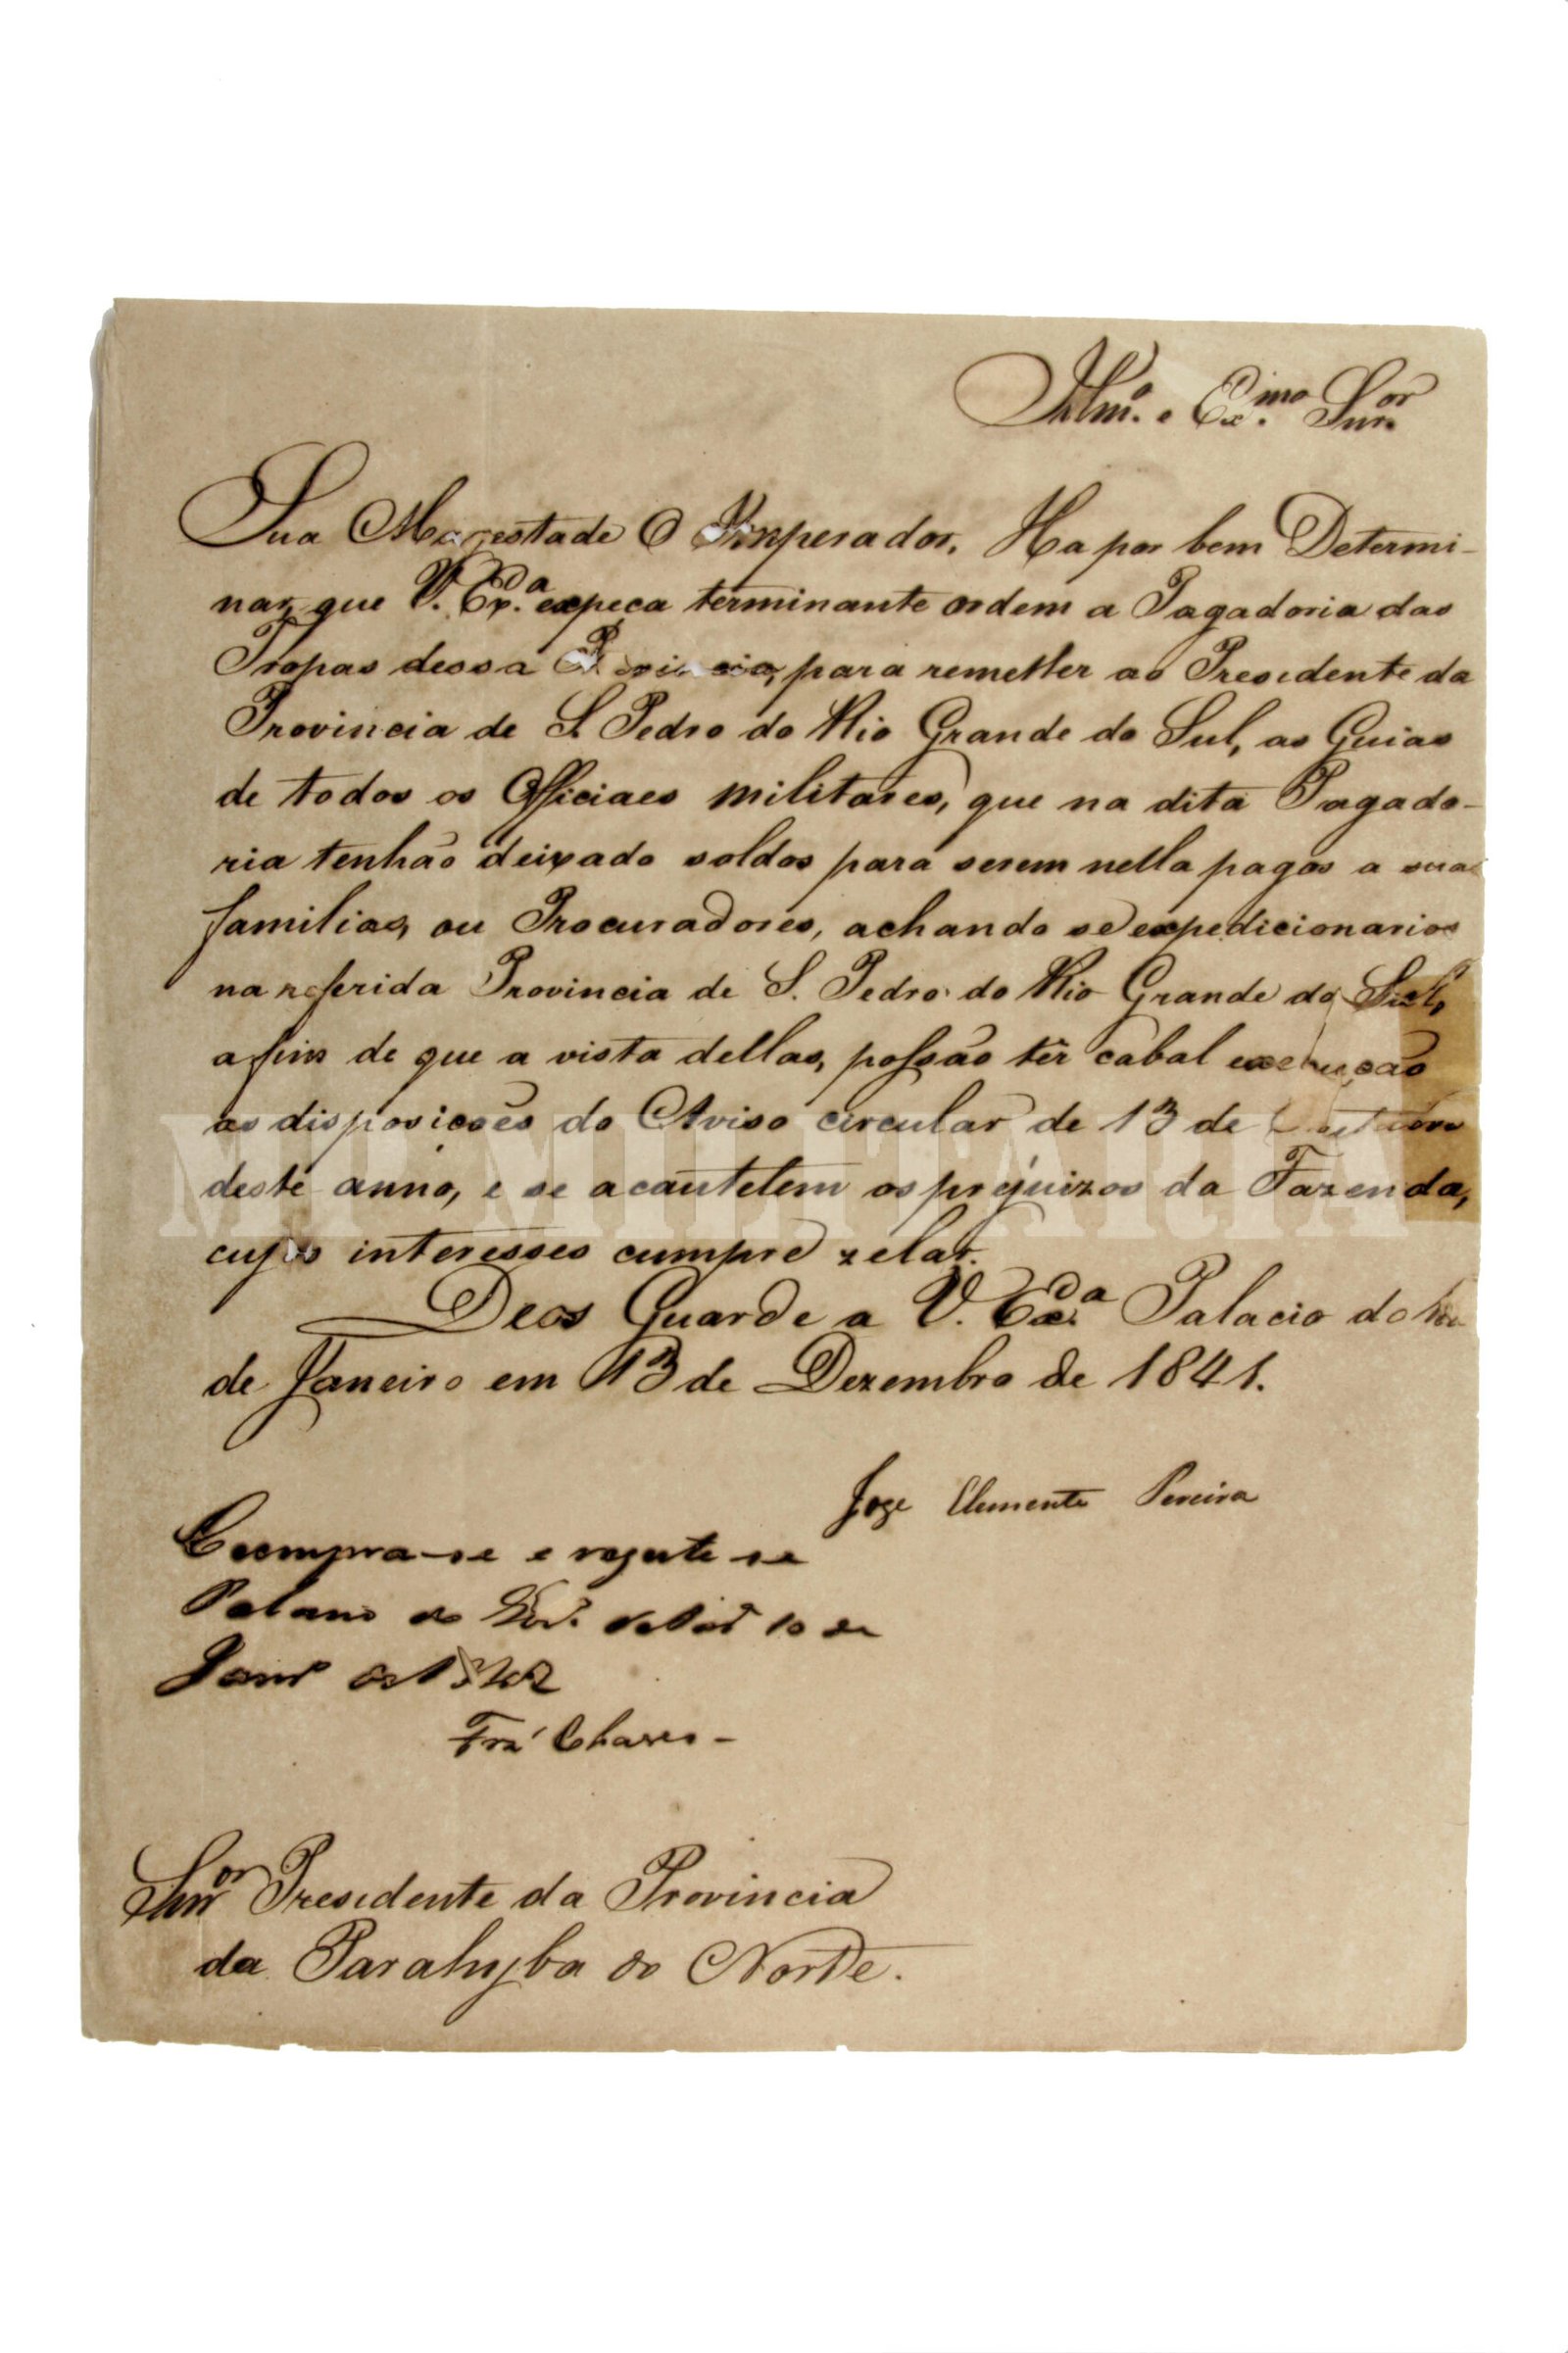 Illm.º e Ex.mo Snr.or
Sua Magestade O Imperador, Ha por bem Determi-
nar, que V. Ex.ª expeça terminante ordem a Pagadoria das
Tropas dessa Provincia, para remetter ao Presidente da
Provincia de S. Pedro do Rio Grande do Sul, as Guias
de todos os Officiaes militares, que na dita Pagado-
ria tenhão deixado soldos para serem nella pagos a suas
familias, ou Procuradores, achando se expedicionarios
na referida Provincia de S. Pedro do Rio Grande do Sul,
a fim de que a vista dellas, possão têr cabal execução
as disposições do Aviso circular de 13 de Outubro
deste anno, e se acautelem os prejuizos da Fazenda,
cujos interesses cumpre zelar.
Deos Guarde a V. Ex.ª Palacio do Rio
de Janeiro em 13 de Dezembro de 1841.
Joze Clemente Pereira
Cumpra-se e registe-se
Palacio do Gov. 10 de
Janr.º de 1842
Chaves -
MP MILITARIA
Snr.or Presidente da Provincia
da Parahyba do Norte.